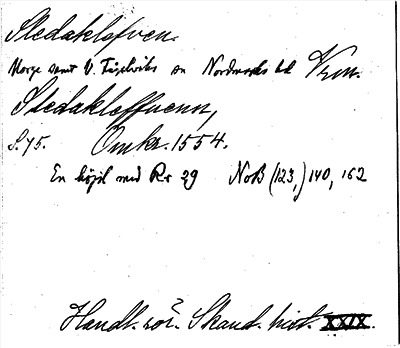 Sledaklofven.
Norge samt V. Fågelviks sn Nordmarks hd Vrm.
Sledakloffuenn,
S. 75. Omkr. 1554.
En höjd vid Rr 29 NoB (123,) 140, 162
Handl. rör. Skand. hist. XXIX.